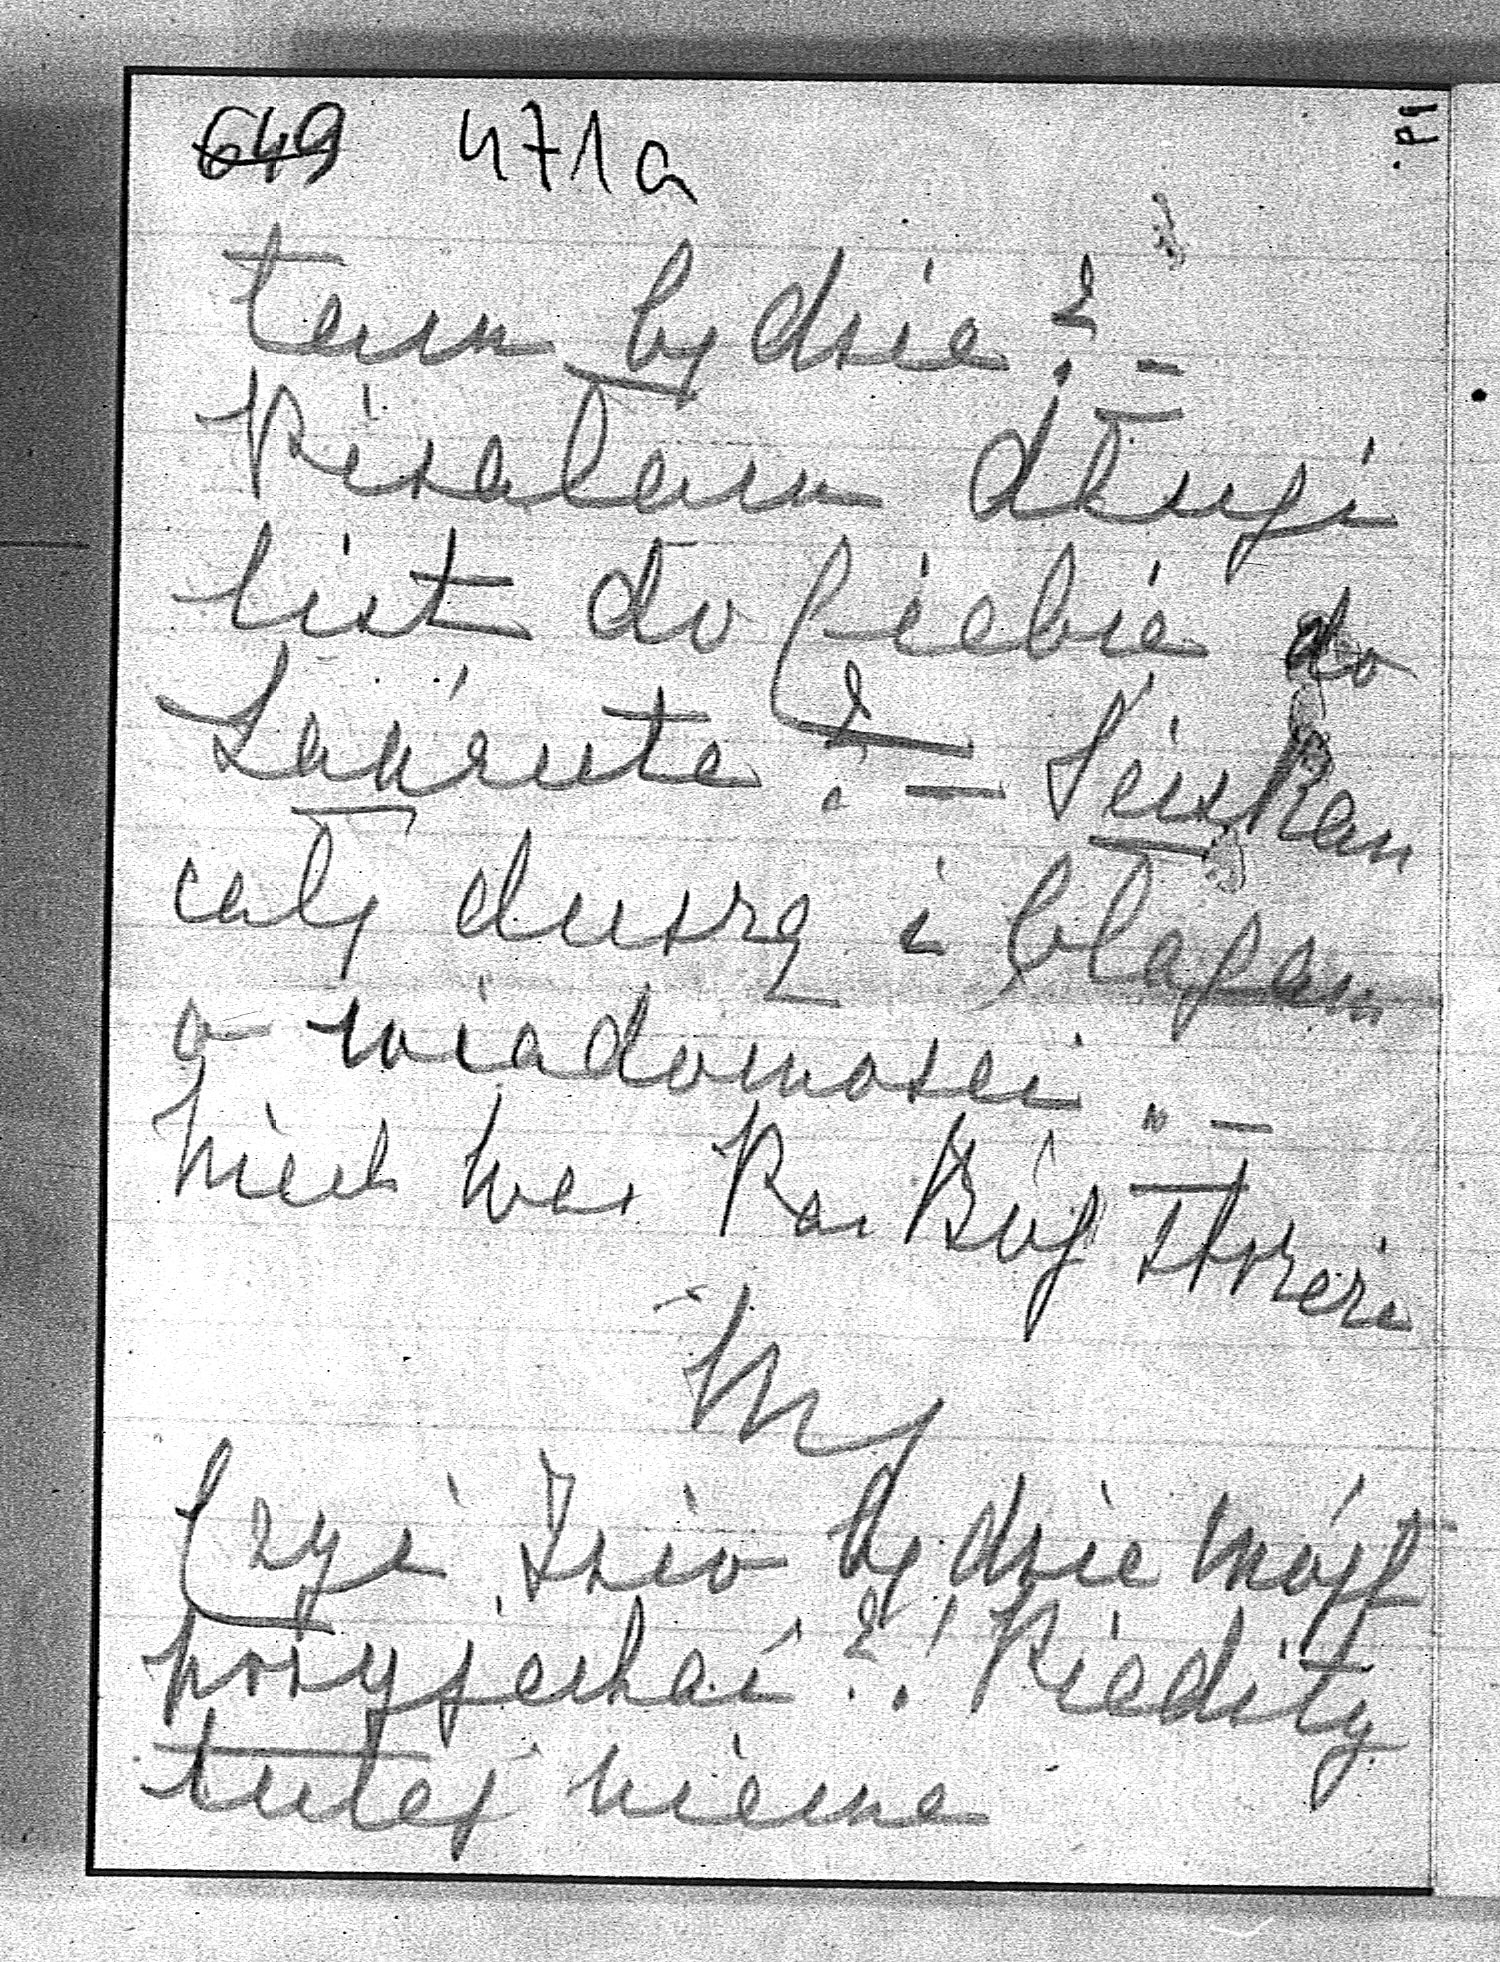 649 471a
tem będzie? –
Pisałam długi
list do Ciebie do
Łańcuta. – Ściskam
całą duszą i błagam
o wiadomości. –
Niech Was Pan Bóg strzeże
M
Czy i Izio będzie mógł
przyjechać?! Kiedy ty
tutej nieme